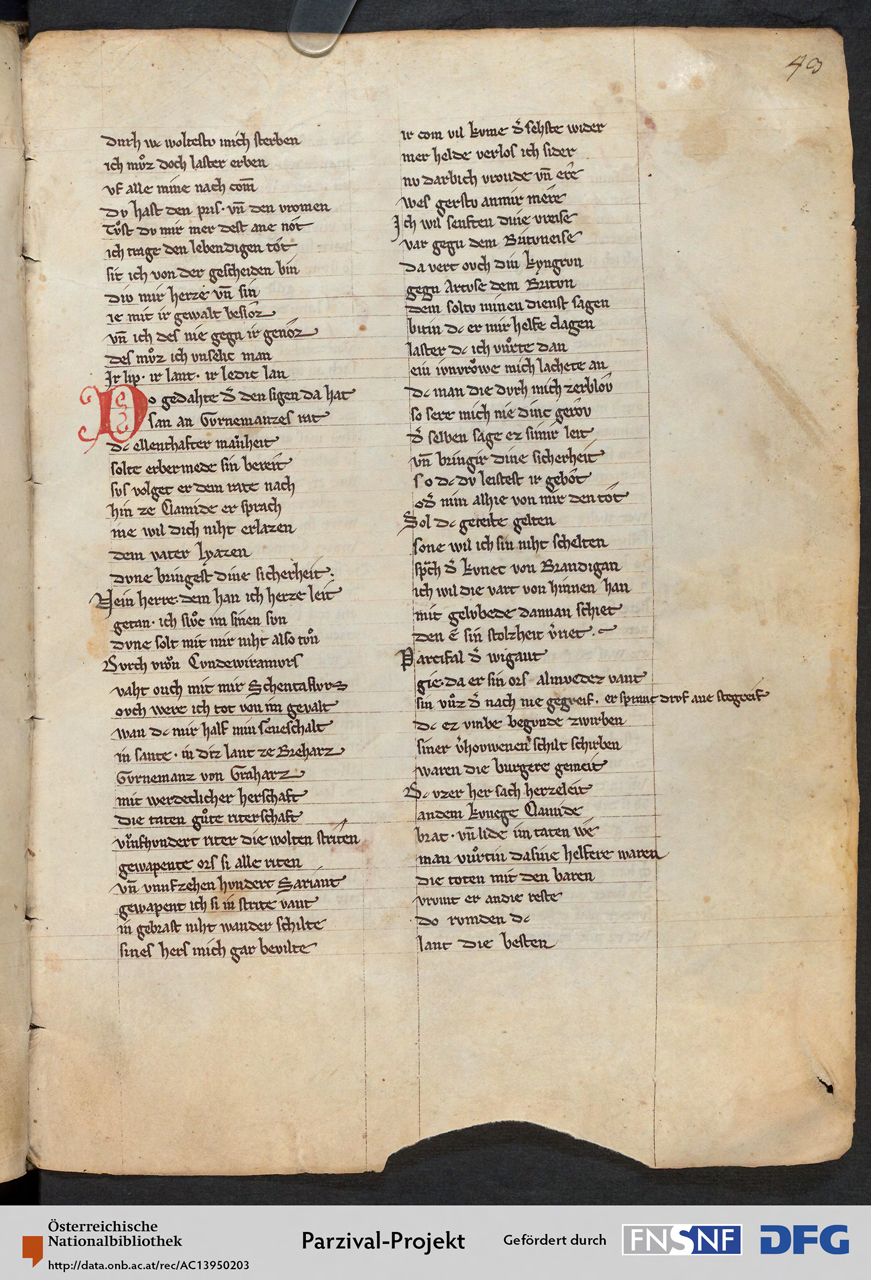 49
durh wc woltestu mich sterben
ich mvͦz doch laster erben
vf alle mine nach com̄
Dv hast den pris· vn̄ den vromen
Tvͦst dv mir mer dest ane not
ich trage den lebendigen tot
sit ich von der gescheiden bin
div mir herze vn̄ sin
ie mit ir gewalt besloz
vn̄ ich des nie gegn ir genoz
des mvͦz ich vnselic man
Ir lip· ir lant· ir ledic lan
Do gedahte d̾ den sigen da hat
san an Gvrnemanzes rat
dc ellenthafter manheit
solte erbermede sin bereit
svs volget er dem rate nach
hin ze Clamide er sprach
ine wil dich niht erlazen
dem vater lyazen
dvne bringest dine sicherheit·
Nein herre· dem han ich herze leit
getan· ich slvͦc im sinen svn
dvne solt mit mir niht also tvͦn
Dvrch vroͮn Cvndewiramvrs
vaht ouch mit mir Schentaflvrs
ovch were ich tot von im gevalt
wan dc mir half min seneschalt
in sante· in diz lant ze Breharz
Gvrnemanz von Graharz
mit werdeclicher herschaft
Die taten gvͦte riterschaft
vivnfhvndert riter die wolten striten
gewapente ors si alle riten
vn̄ vunfzehen hvndert Sariant
gewapent ich si in strite vant
in gebrast niht wander schilte
sines hers mich gar bevilte
ir com vil kvme d̾ sehste wider
mer helde verlos ich sider
nv darbich vroude vn̄ ere
wes gerstv anmir mere
Ich wil senften dine vreise
var gegn dem Brituneise
da vert ovch din kyngrvn
gegn Artvse dem Briton
dem soltv minen dienst sagen
bitin dc er mir helfe clagen
laster dc ich vuͦrte dan
ein ivncvroͮwe mich lachete an
dc man die dvrh mich zerbloͮ
so sere mich nie dinc geroͮ
d̾ selben sage ez simir leit
vn̄ bringir dine sicherheit
so dc dv leistest ir gebot
od̾ nim alhie von mir den tot
Sol dc geteite gelten
sone wil ich sin niht schelten
sp̄ch d̾ kvnec von Brandigan
ich wil die vart von hinnen han
mit gelvbede dannan schiet
den e sin stolzheit v̾riet·
Parcifal d̾ wigant
gie· da er sin ors almvedez vant
sin vuͦz d̾ nach nie gegreif· er spranc drvf ane stegreif
dc ez vmbe begvnde zwirben
siner v̾hovwenen schilt schirben
waren die burgere gemeit
Dc vzer her sach herzeleit
andem kvnege Clamide
brat· vn̄ lide im taten we
man vuͦrtin dasine helfere waren
die toten mit den baren
vromt er andie reste
do rvmden dc
lant die besten
Österreichische
Nationalbibliothek
http://data.onb.ac.at/rec/AC13950203
Parzival-Projekt
Gefördert durch
FNSNF
DFG